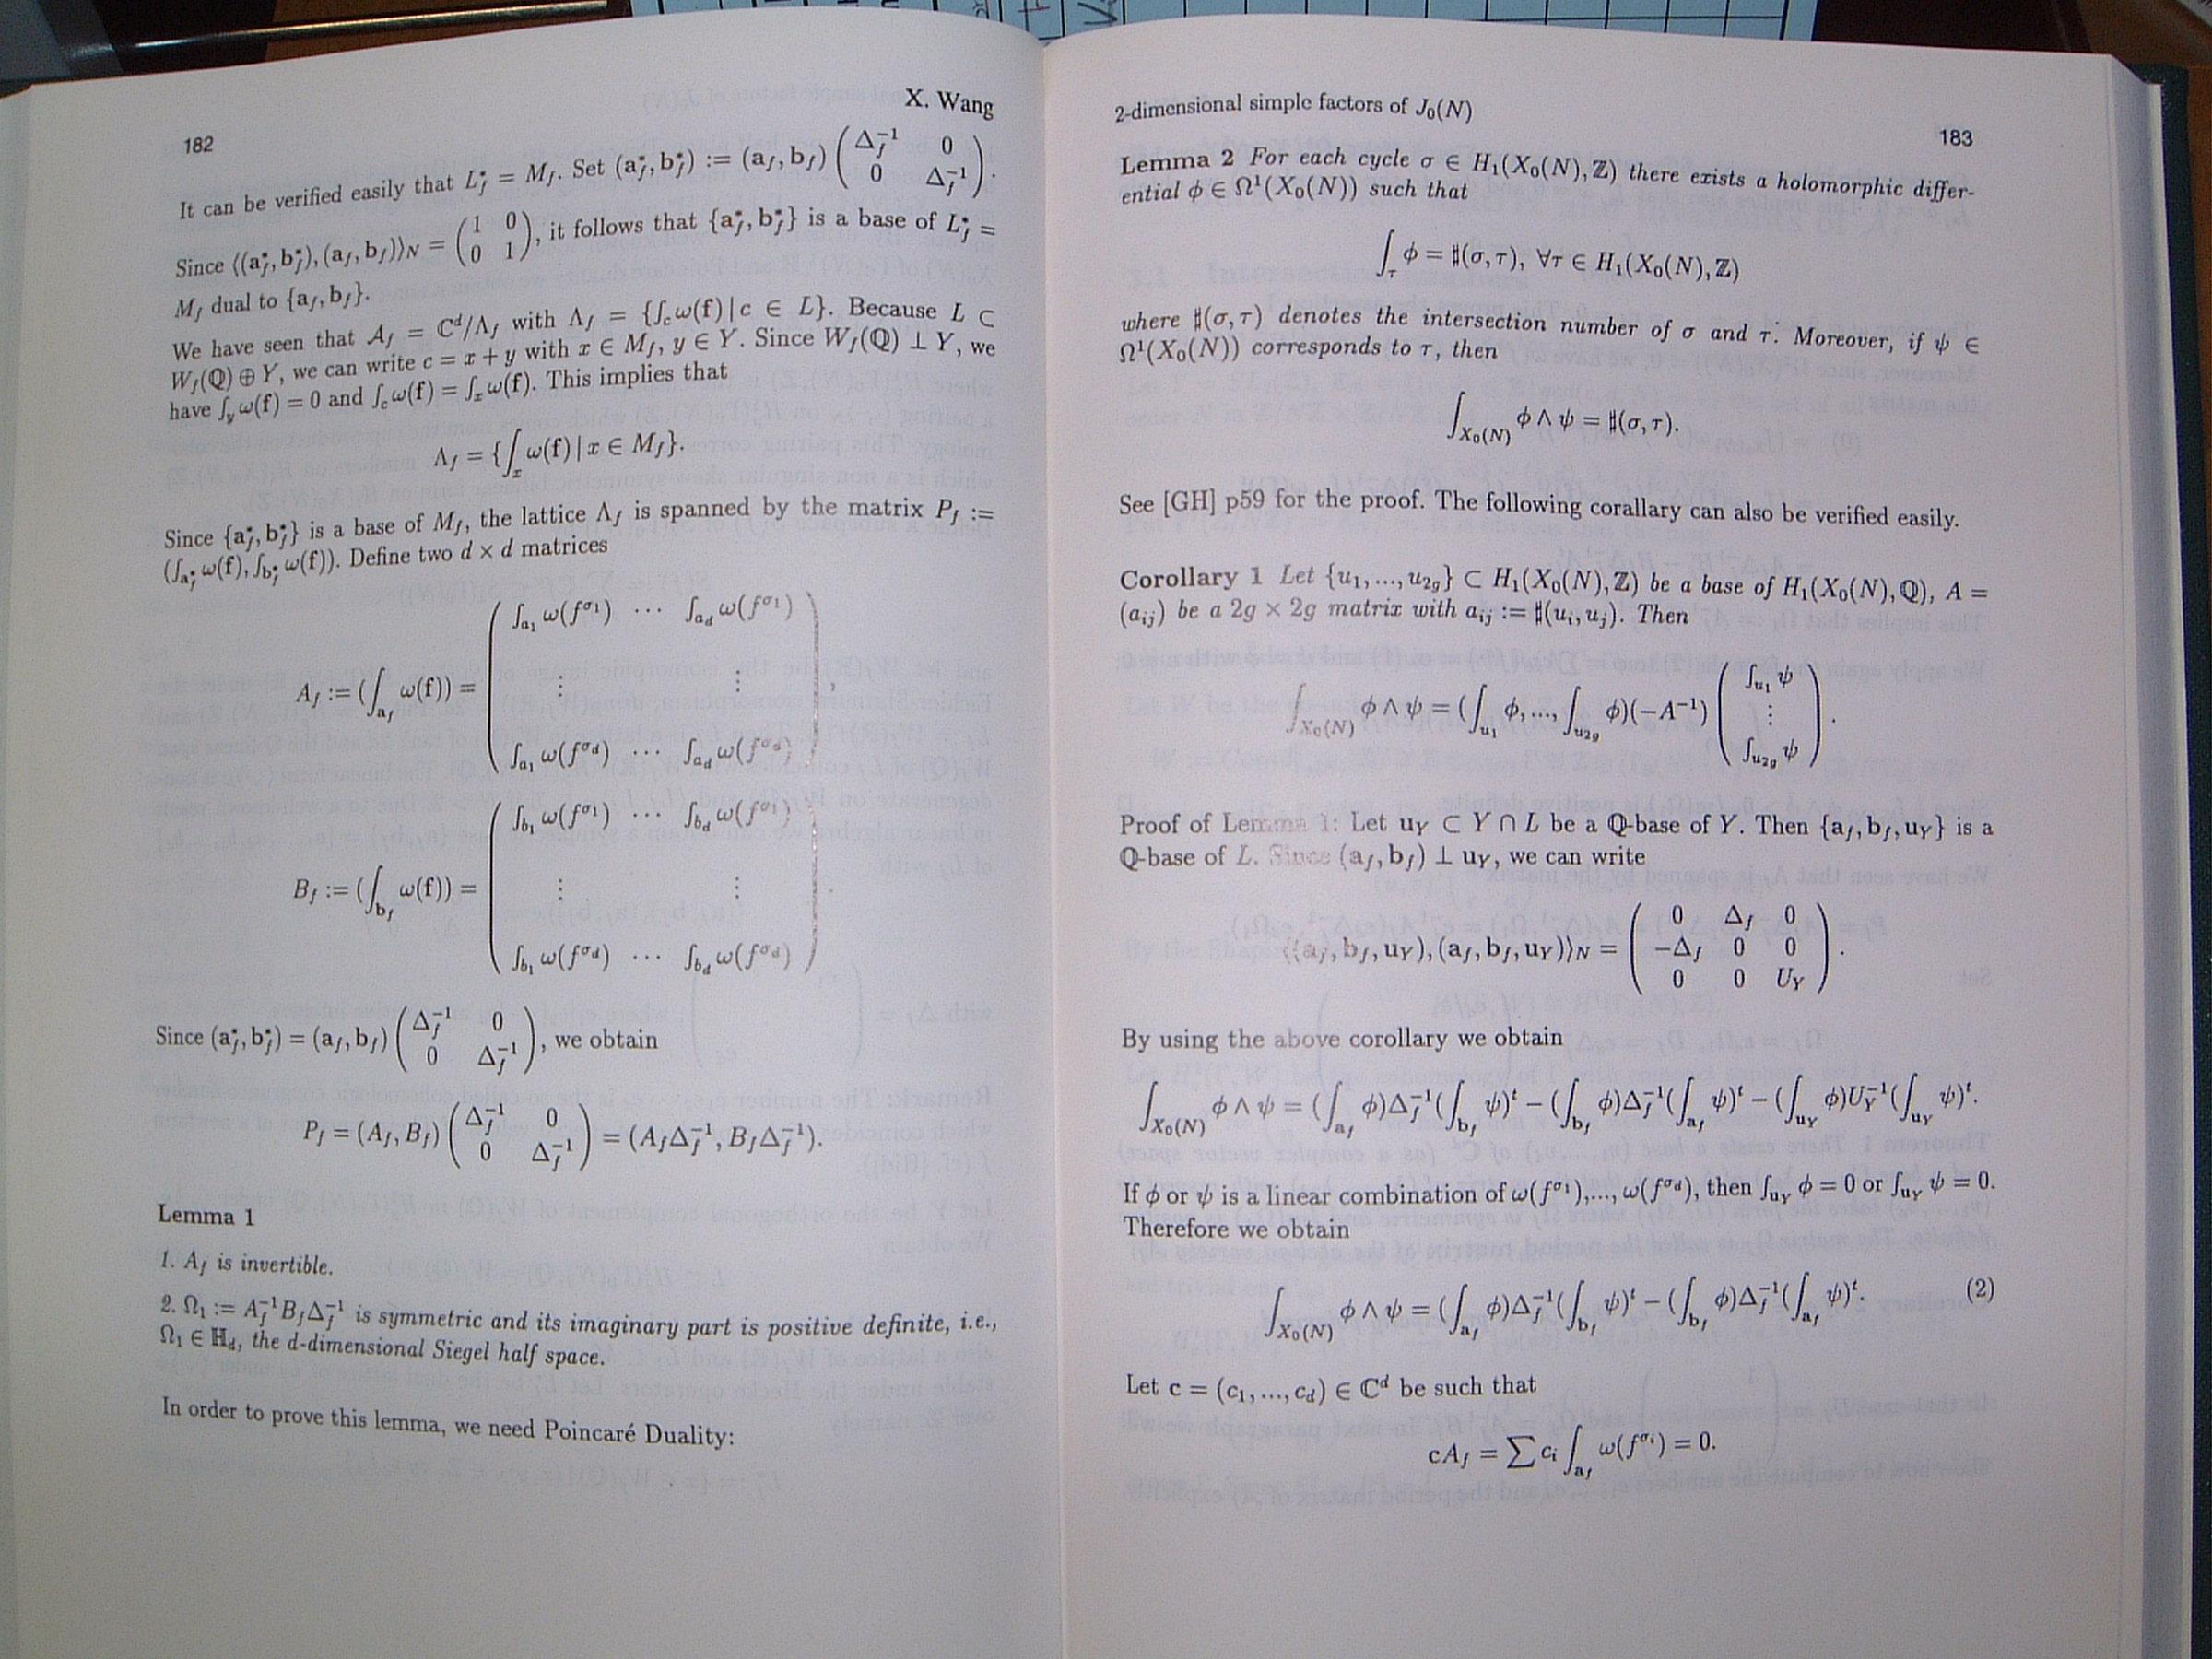 X. Wang
182
It can be verified easily that L*_f = M_f. Set (a*_f, b*_f) := (a_f, b_f) ( Δ_f^{-1} 0 ; 0 Δ_f^{-1} ).
Since ⟨(a*_f, b*_f), (a_f, b_f)⟩_N = ( 1 0 ; 0 1 ), it follows that {a*_f, b*_f} is a base of L*_f =
M_f dual to {a_f, b_f}.
We have seen that A_f = ℂ^d/Λ_f with Λ_f = {∫_c ω(f) | c ∈ L}. Because L ⊂
W_f(ℚ) ⊕ Y, we can write c = x + y with x ∈ M_f, y ∈ Y. Since W_f(ℚ) ⊥ Y, we
have ∫_y ω(f) = 0 and ∫_c ω(f) = ∫_x ω(f). This implies that
Λ_f = {∫_x ω(f) | x ∈ M_f}.
Since {a*_f, b*_f} is a base of M_f, the lattice Λ_f is spanned by the matrix P_f :=
(∫_{a*_f} ω(f), ∫_{b*_f} ω(f)). Define two d × d matrices
A_f := (∫_{a_f} ω(f)) = ( ∫_{a_1} ω(f^{σ_1}) ⋯ ∫_{a_d} ω(f^{σ_1}) ; ⋮ ⋮ ; ∫_{a_1} ω(f^{σ_d}) ⋯ ∫_{a_d} ω(f^{σ_d}) ),
B_f := (∫_{b_f} ω(f)) = ( ∫_{b_1} ω(f^{σ_1}) ⋯ ∫_{b_d} ω(f^{σ_1}) ; ⋮ ⋮ ; ∫_{b_1} ω(f^{σ_d}) ⋯ ∫_{b_d} ω(f^{σ_d}) ).
Since (a*_f, b*_f) = (a_f, b_f) ( Δ_f^{-1} 0 ; 0 Δ_f^{-1} ), we obtain
P_f = (A_f, B_f) ( Δ_f^{-1} 0 ; 0 Δ_f^{-1} ) = (A_f Δ_f^{-1}, B_f Δ_f^{-1}).
Lemma 1
1. A_f is invertible.
2. Ω_1 := A_f^{-1} B_f Δ_f^{-1} is symmetric and its imaginary part is positive definite, i.e.,
Ω_1 ∈ ℍ_d, the d-dimensional Siegel half space.
In order to prove this lemma, we need Poincaré Duality:
2-dimensional simple factors of J_0(N)
183
Lemma 2 For each cycle σ ∈ H_1(X_0(N), ℤ) there exists a holomorphic differ-
ential φ ∈ Ω^1(X_0(N)) such that
∫_τ φ = ♯(σ, τ), ∀τ ∈ H_1(X_0(N), ℤ)
where ♯(σ, τ) denotes the intersection number of σ and τ. Moreover, if ψ ∈
Ω^1(X_0(N)) corresponds to τ, then
∫_{X_0(N)} φ ∧ ψ = ♯(σ, τ).
See [GH] p59 for the proof. The following corallary can also be verified easily.
Corollary 1 Let {u_1, ..., u_{2g}} ⊂ H_1(X_0(N), ℤ) be a base of H_1(X_0(N), ℚ), A =
(a_{ij}) be a 2g × 2g matrix with a_{ij} := ♯(u_i, u_j). Then
∫_{X_0(N)} φ ∧ ψ = (∫_{u_1} φ, ..., ∫_{u_{2g}} φ)(−A^{-1}) ( ∫_{u_1} ψ ; ⋮ ; ∫_{u_{2g}} ψ ).
Proof of Lemma 1: Let u_Y ⊂ Y ∩ L be a ℚ-base of Y. Then {a_f, b_f, u_Y} is a
ℚ-base of L. Since (a_f, b_f) ⊥ u_Y, we can write
⟨(a_f, b_f, u_Y), (a_f, b_f, u_Y)⟩_N = ( 0 Δ_f 0 ; −Δ_f 0 0 ; 0 0 U_Y ).
By using the above corollary we obtain
∫_{X_0(N)} φ ∧ ψ = (∫_{a_f} φ)Δ_f^{-1}(∫_{b_f} ψ)^t − (∫_{b_f} φ)Δ_f^{-1}(∫_{a_f} ψ)^t − (∫_{u_Y} φ)U_Y^{-1}(∫_{u_Y} ψ)^t.
If φ or ψ is a linear combination of ω(f^{σ_1}),..., ω(f^{σ_d}), then ∫_{u_Y} φ = 0 or ∫_{u_Y} ψ = 0.
Therefore we obtain
∫_{X_0(N)} φ ∧ ψ = (∫_{a_f} φ)Δ_f^{-1}(∫_{b_f} ψ)^t − (∫_{b_f} φ)Δ_f^{-1}(∫_{a_f} ψ)^t. (2)
Let c = (c_1, ..., c_d) ∈ ℂ^d be such that
cA_f = ∑ c_i ∫_{a_f} ω(f^{σ_i}) = 0.